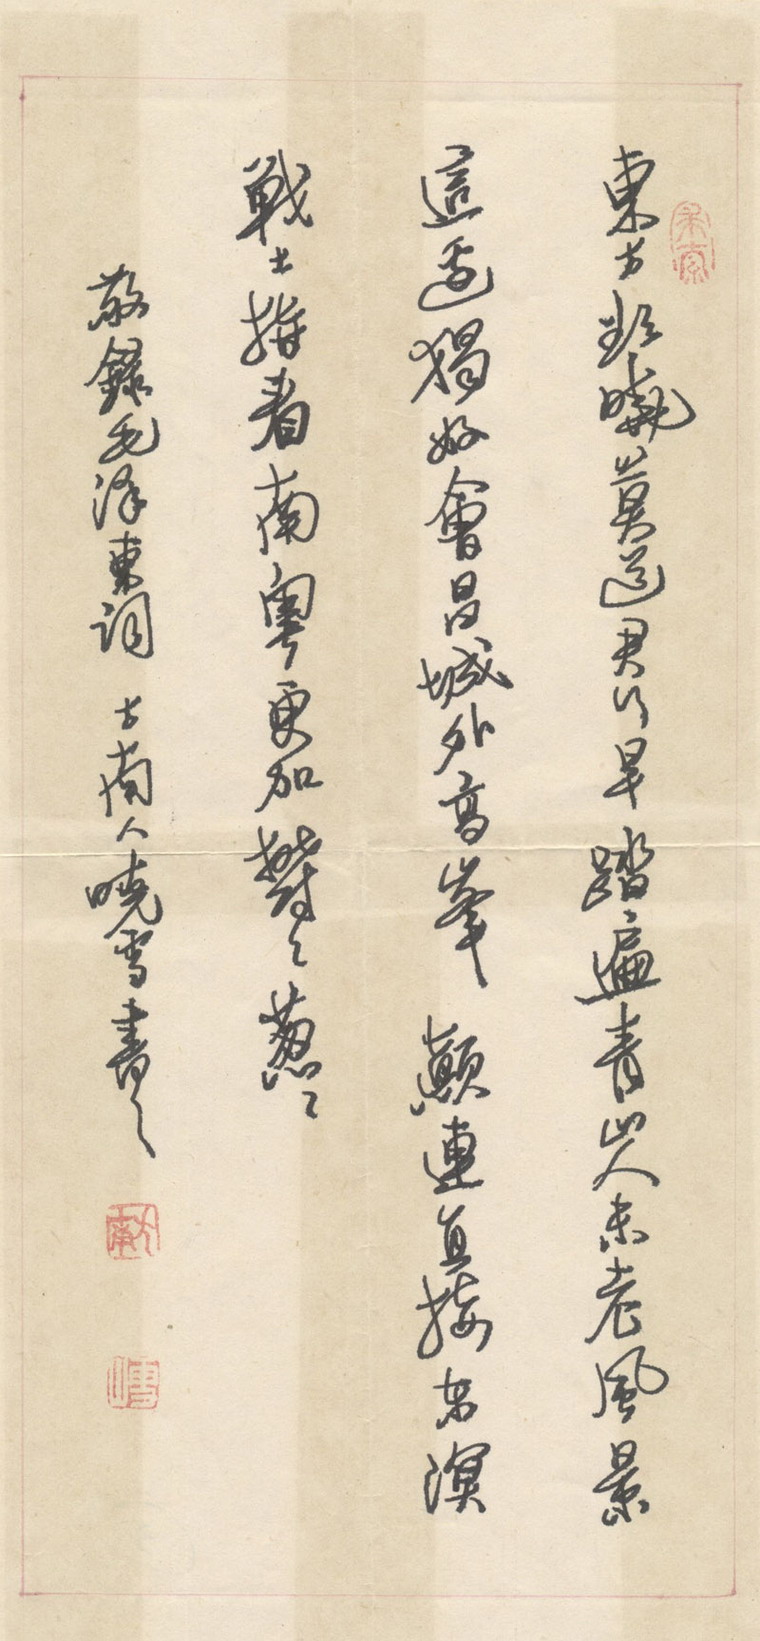 東方欲曉莫道君行早踏遍青山人未老風景
這邊獨好會昌城外高峯顛連直接東溟
戰士指看南粵更加鬱々蔥々
敬錄毛澤東詞 南人曉雪書之